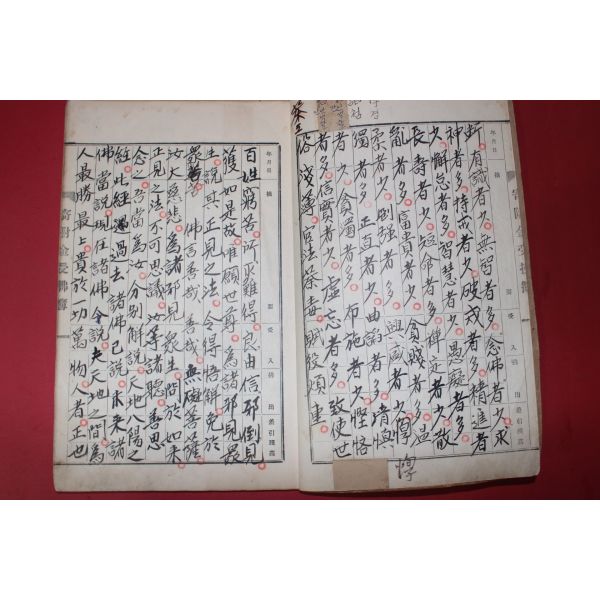 年月日
摘
斷有識者少無智者多念佛者少求
神者多持戒者少破戒者多精進者
少懈怠者多智慧者少愚癡者多
長壽者少短命者多禪定者少散
亂者多富貴者少貧賤者多溫
柔者少剛强者多興盛者少惸
獨者多正直者少曲諂者多淸愼
者少貪濁者多布施者少慳悋
者多信實者少虛妄者多致使世
俗淺薄官法荼毒賦役煩重
惸
年月日
摘
百姓窮苦所求難得良由信邪倒見
獲如是故唯願世尊爲諸邪見衆
生說其正見之法令得悟解免於
衆苦佛言善哉善哉無碍菩薩
汝大慈悲爲諸邪見衆生問於如來
正見之法不可思議汝等諦聽善思
念之吾當爲汝分別解說天地八陽之
經此經過去諸佛已說未來諸
佛當說現在諸佛今說夫天地之間爲
人最勝最上貴於一切萬物人者正也